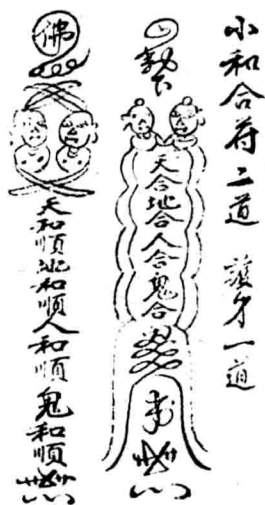 小和合符二道 護身一道
勅下
天合地合人合鬼合
佛
天和順地和順人和順鬼和順